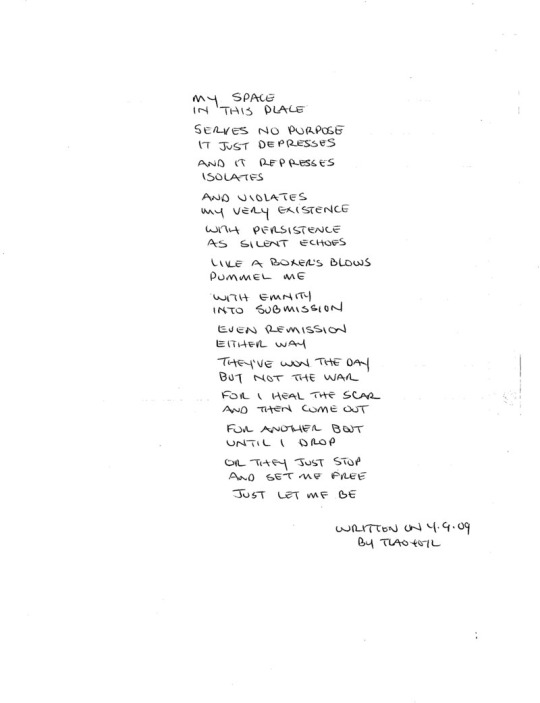 MY SPACE
IN THIS PLACE
SERVES NO PURPOSE
IT JUST DEPRESSES
AND IT REPRESSES
ISOLATES
AND VIOLATES
MY VERY EXISTENCE
WITH PERSISTENCE
AS SILENT ECHOES
LIKE A BOXER'S BLOWS
PUMMEL ME
WITH EMNITY
INTO SUBMISSION
EVEN REMISSION
EITHER WAY
THEY'VE WON THE DAY
BUT NOT THE WAR
FOR I HEAL THE SCAR
AND THEN COME OUT
FOR ANOTHER BOUT
UNTIL I DROP
OR THEY JUST STOP
AND SET ME FREE
JUST LET ME BE
WRITTEN ON 4.9.09
BY